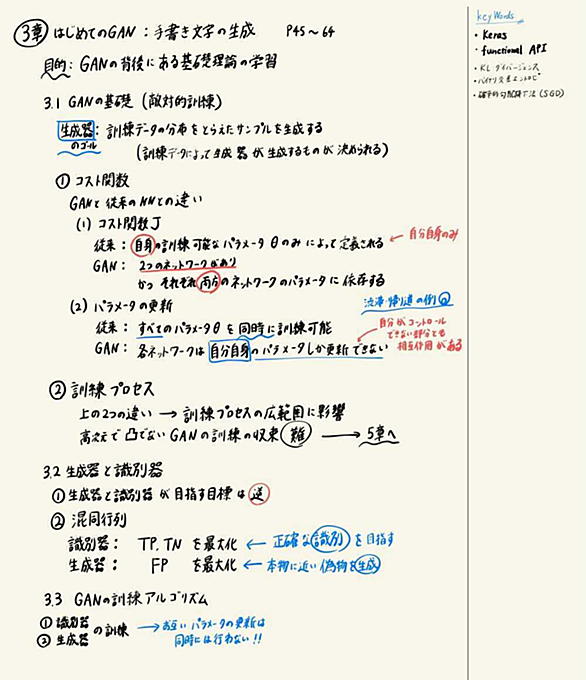 3章 はじめてのGAN：手書き文字の生成 P45〜64
目的：GANの背後にある基礎理論の学習
3.1 GANの基礎（敵対的訓練）
生成器：訓練データの分布をとらえたサンプルを生成する
のゴール
（訓練データによって生成器が生成するものが決められる）
① コスト関数
GANと従来のNNとの違い
(1) コスト関数J
従来：自身の訓練可能なパラメータθのみによって定義される ← 自分自身のみ
GAN：2つのネットワークがあり
かつそれぞれ両方のネットワークのパラメータに依存する
(2) パラメータの更新
渋滞・帰り道の例
従来：すべてのパラメータθを同時に訓練可能
GAN：各ネットワークは自分自身のパラメータしか更新できない
自分がコントロール
できない部分とも
相互作用がある
② 訓練プロセス
上の2つの違い → 訓練プロセスの広範囲に影響
高次元で凸でないGANの訓練の収束 難 → 5章へ
3.2 生成器と識別器
① 生成器と識別器が目指す目標は逆
② 混同行列
識別器： TP, TN を最大化 ← 正確な識別を目指す
生成器： FP を最大化 ← 本物に近い偽物を生成
3.3 GANの訓練アルゴリズム
① 識別器
② 生成器 の訓練 → お互いパラメータの更新は
同時には行わない!!
keyWords
・Keras
・functional API
・KLダイバージェンス
・バイナリ交差エントロピー
・確率的勾配降下法（SGD）